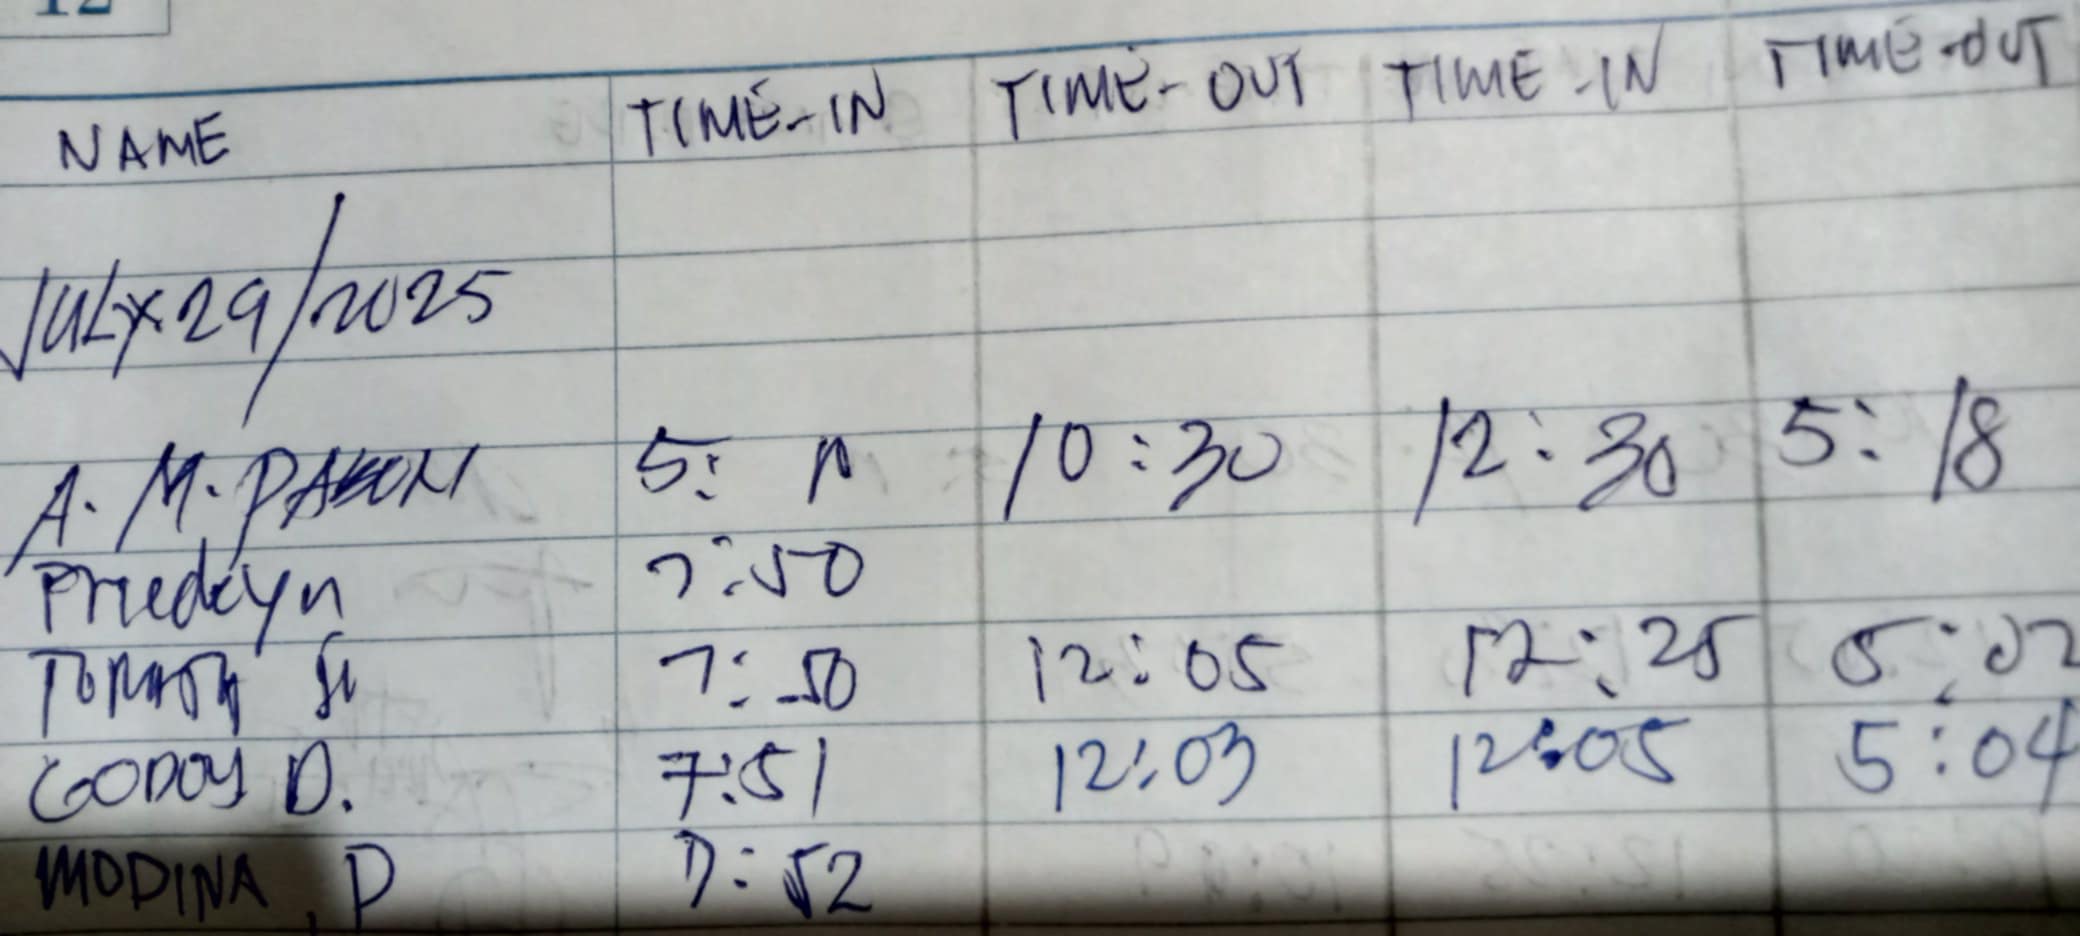 12
NAME TIME-IN TIME-OUT TIME-IN TIME-OUT
JULY 29/2025
A. M. 5: 10:30 12:30 5:18
7:50
7:50 12:05 12:25 5:02
GODOY D. 7:51 12:03 12:05 5:04
MODINA, D 7:52